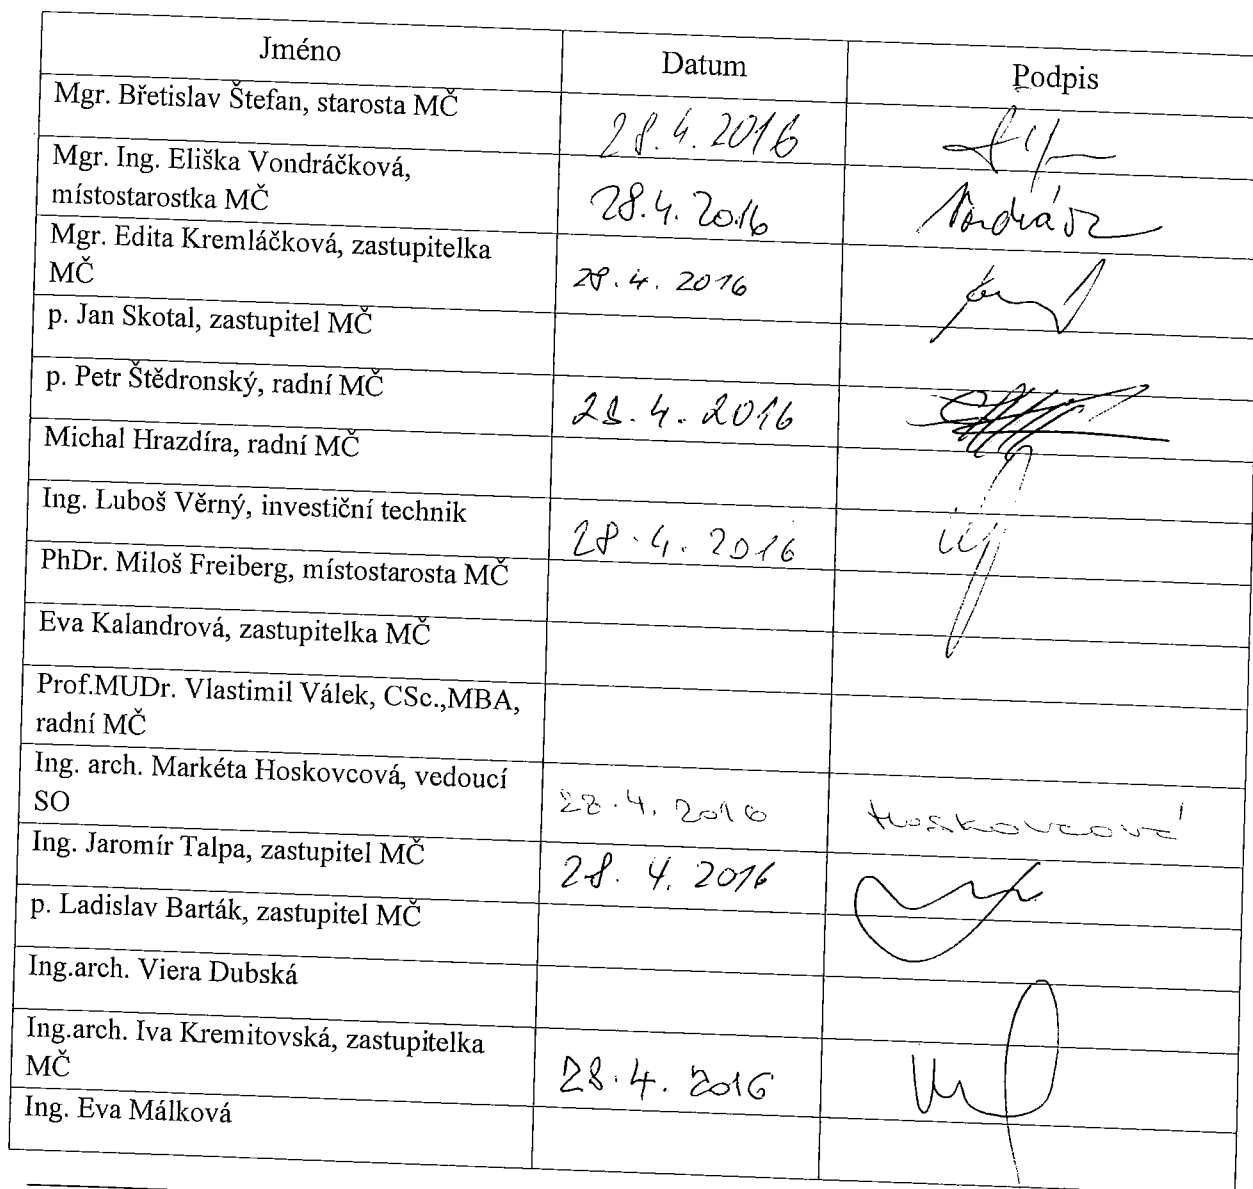 Jméno Datum Podpis
Mgr. Břetislav Štefan, starosta MČ 28.4.2016
Mgr. Ing. Eliška Vondráčková,
místostarostka MČ 28.4.2016
Mgr. Edita Kremláčková, zastupitelka
MČ 28.4.2016
p. Jan Skotal, zastupitel MČ
p. Petr Štědronský, radní MČ 28.4.2016
Michal Hrazdíra, radní MČ
Ing. Luboš Věrný, investiční technik 28.4.2016
PhDr. Miloš Freiberg, místostarosta MČ
Eva Kalandrová, zastupitelka MČ
Prof.MUDr. Vlastimil Válek, CSc.,MBA,
radní MČ
Ing. arch. Markéta Hoskovcová, vedoucí
SO 28.4.2016 Hoskovcová
Ing. Jaromír Talpa, zastupitel MČ 28.4.2016
p. Ladislav Barták, zastupitel MČ
Ing.arch. Viera Dubská
Ing.arch. Iva Kremitovská, zastupitelka
MČ 28.4.2016
Ing. Eva Málková